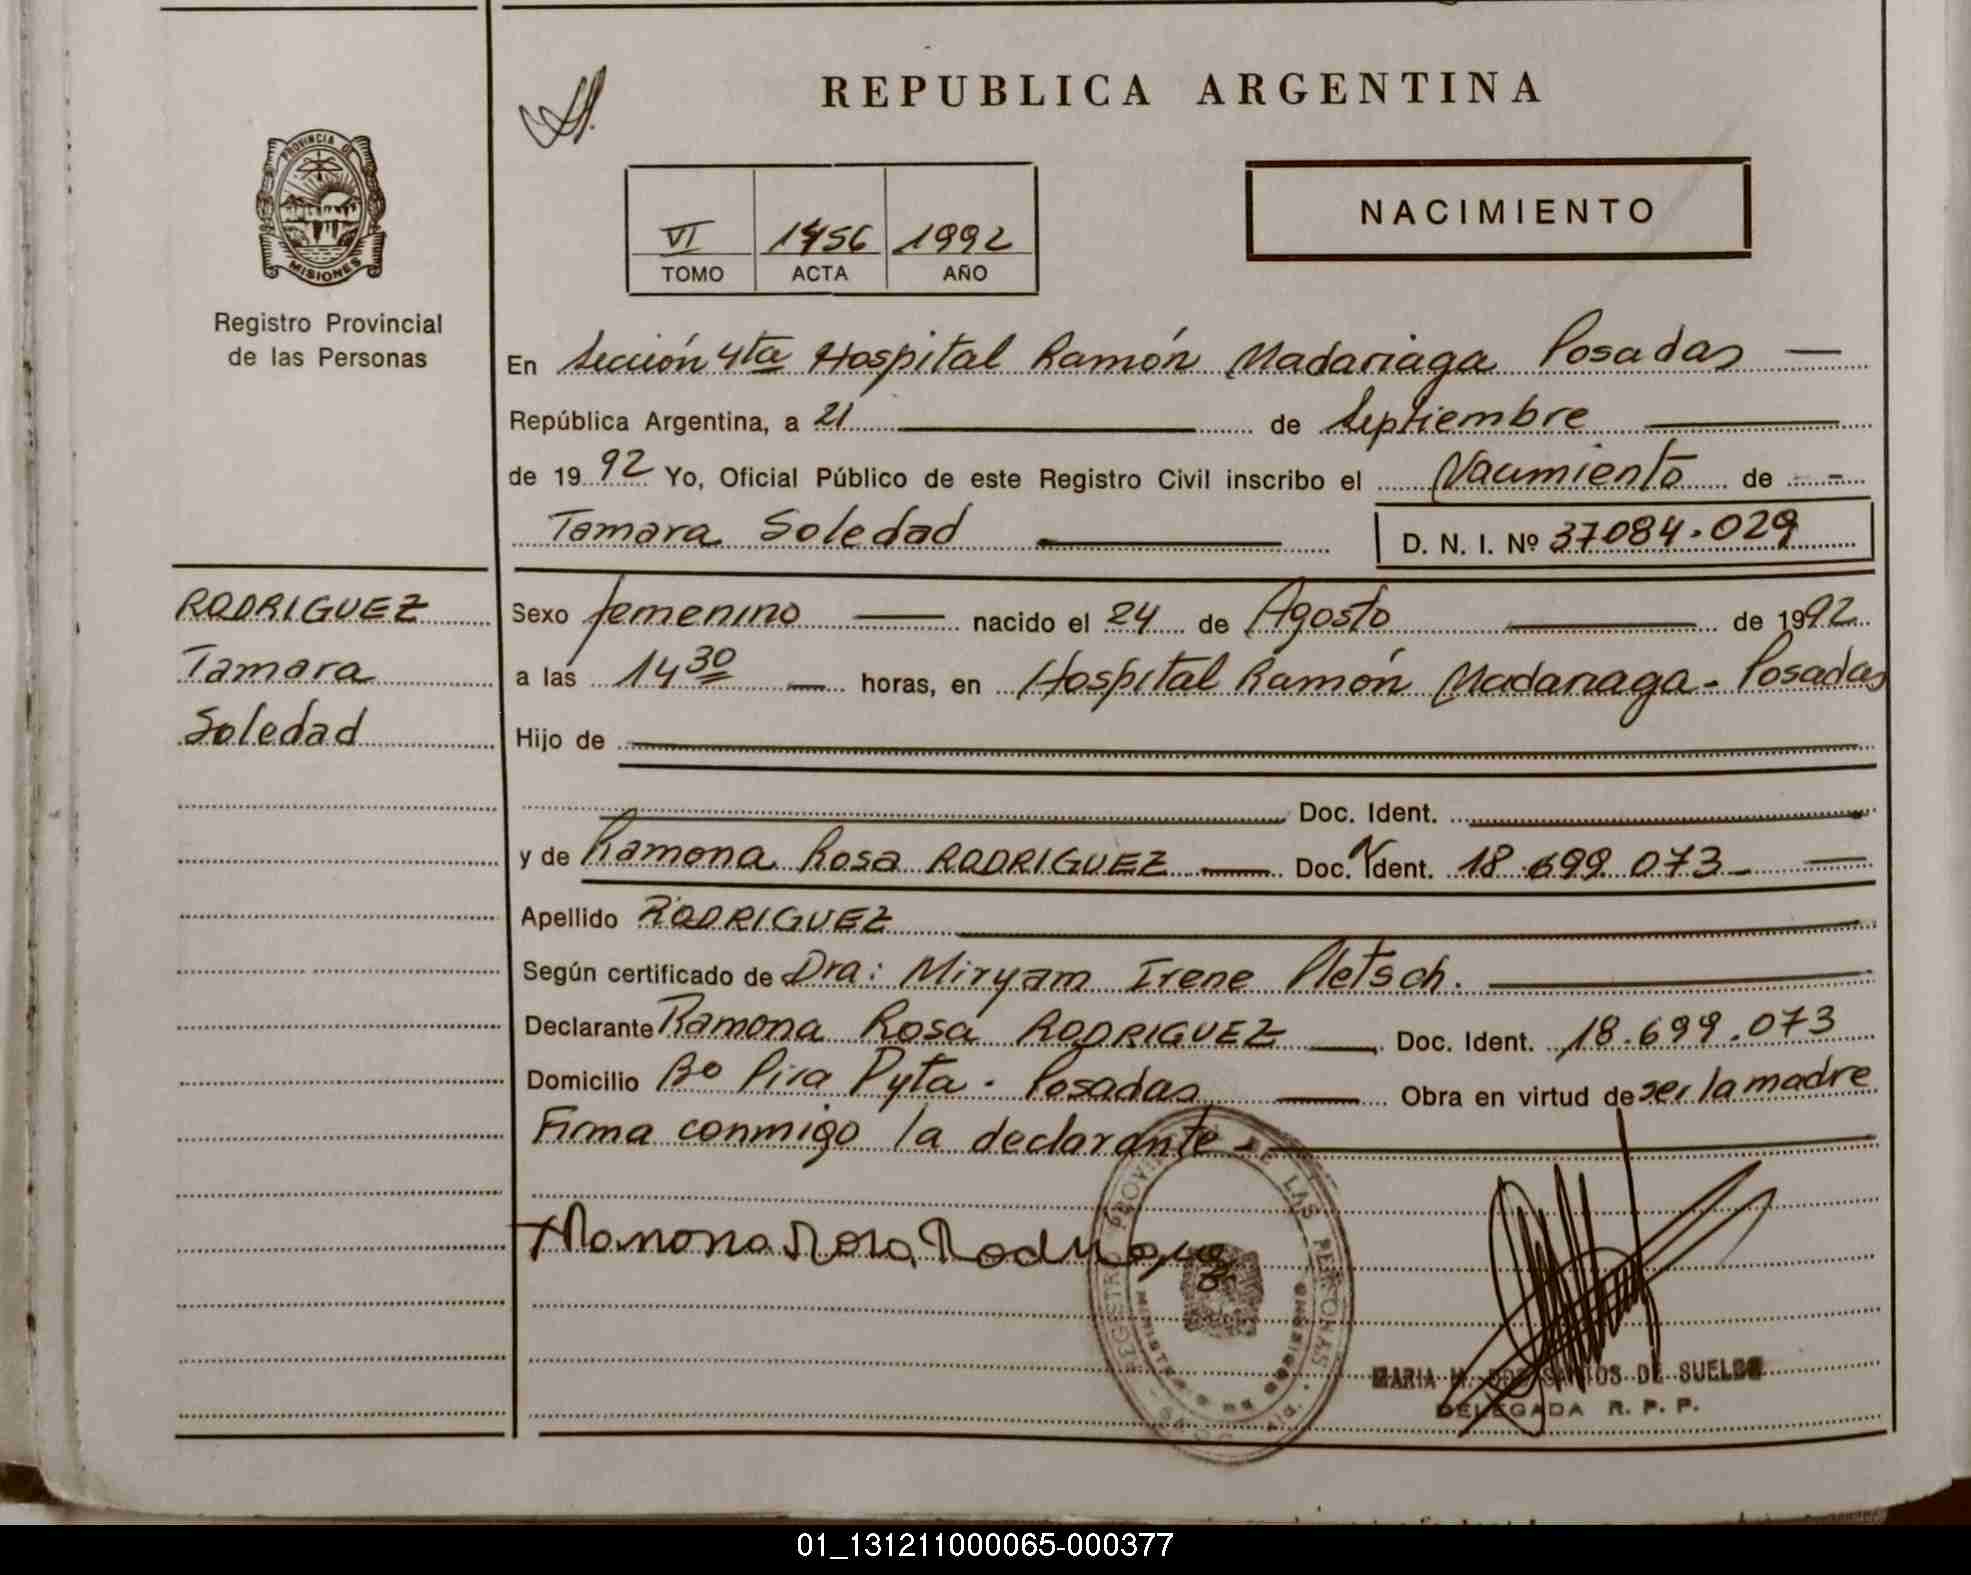 REPUBLICA ARGENTINA
PROVINCIA DE
MISIONES
Registro Provincial
de las Personas
VI 1456 1992
TOMO ACTA AÑO
NACIMIENTO
En Sección 4ta Hospital Ramón Madariaga Posadas —
República Argentina, a 21 de Septiembre
de 1992 Yo, Oficial Público de este Registro Civil inscribo el Nacimiento de -
Tamara Soledad D. N. I. Nº 37084.029
RODRIGUEZ
Tamara
Soledad
Sexo femenino — nacido el 24 de Agosto — de 1992
a las 14 30 — horas, en Hospital Ramón Madariaga - Posadas
Hijo de
Doc. Ident.
y de Ramona Rosa RODRIGUEZ — Doc. Ident. 18.699.073 —
Apellido RODRIGUEZ
Según certificado de Dra: Miryam Irene Pletsch.
Declarante Ramona Rosa RODRIGUEZ — Doc. Ident. 18.699.073
Domicilio Bº Pira Pyta - Posadas — Obra en virtud de ser la madre
Firma conmigo la declarante -
Ramona Rosa Rodriguez
REGISTRO PROVINCIAL DE LAS PERSONAS
MARIA M. DOS SANTOS DE SUELDO
DELEGADA R. P. P.
01_131211000065-000377